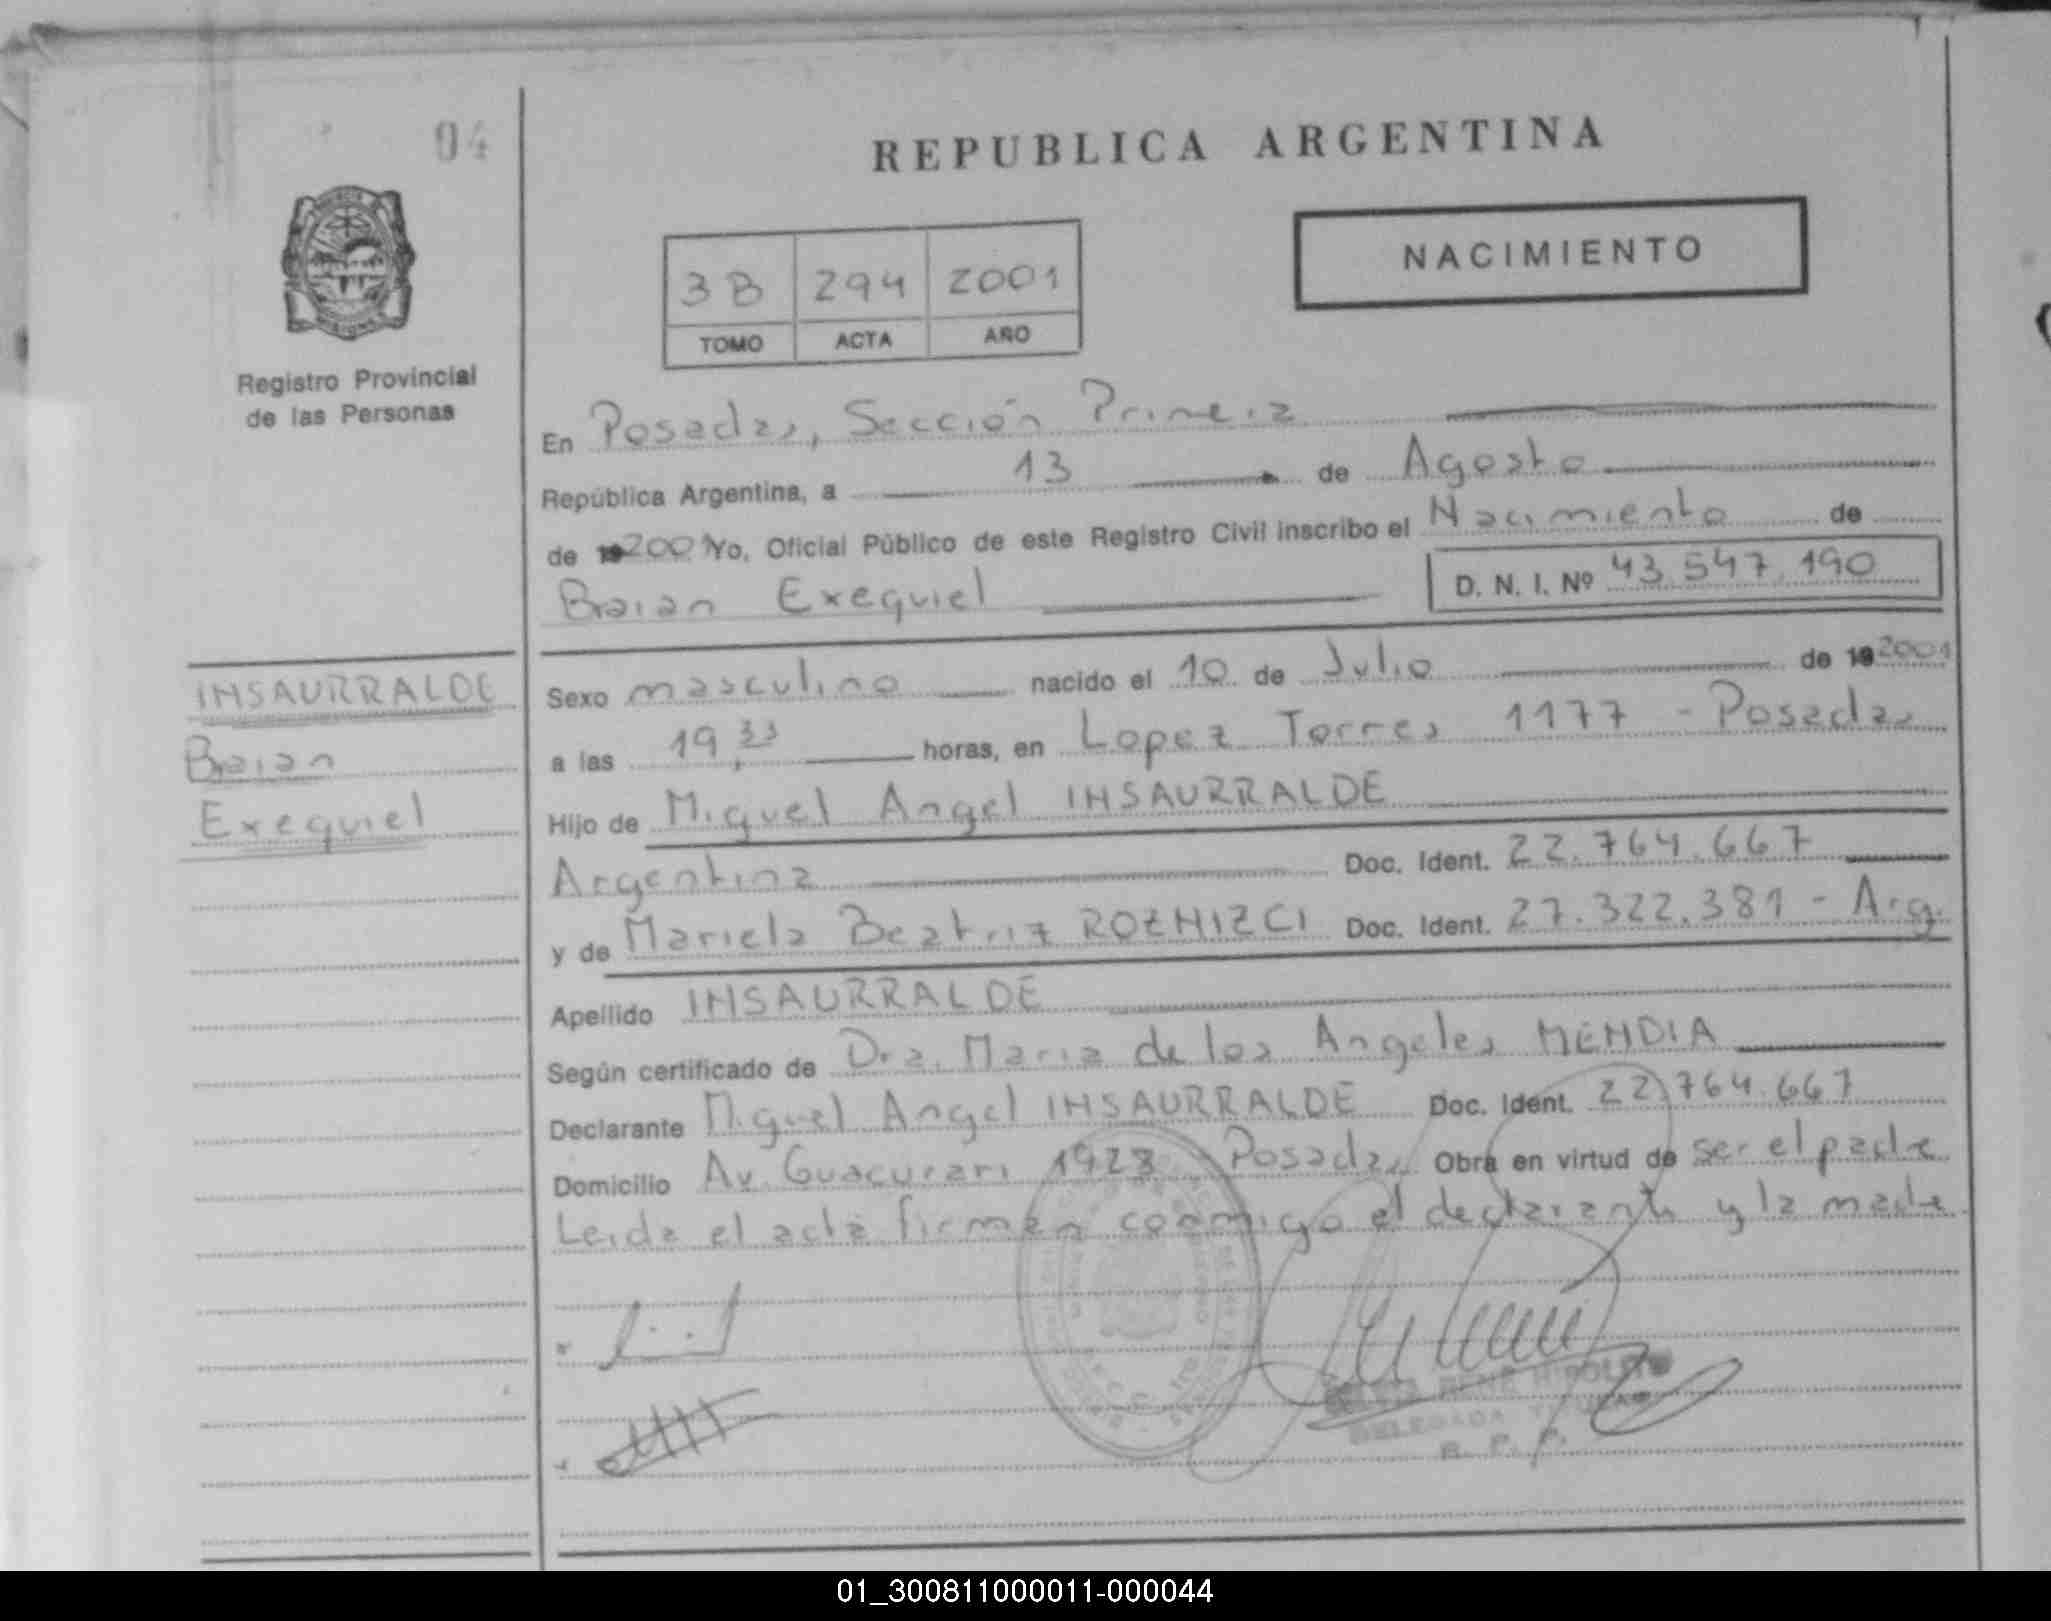 04
REPUBLICA ARGENTINA
NACIMIENTO
3B 294 2001
TOMO ACTA AÑO
Registro Provincial
de las Personas
En Posadas, Sección Primera
República Argentina, a 13 de Agosto
de 19 2001 Yo, Oficial Público de este Registro Civil inscribo el Nacimiento de
Braian Exequiel D. N. I. Nº 43.547.190
INSAURRALDE
Braian
Exequiel
Sexo masculino nacido el 10 de Julio de 19 2001
a las 19,33 horas, en Lopez Torres 1177 - Posadas
Hijo de Miguel Angel INSAURRALDE
Argentina Doc. Ident. 22.764.667
y de Mariela Beatriz ROZNIZCI Doc. Ident. 27.322.381 - Arg.
Apellido INSAURRALDE
Según certificado de Dra. Maria de los Angeles MENDIA
Declarante Miguel Angel INSAURRALDE Doc. Ident. 22.764.667
Domicilio Av. Guacurari 1928 Posadas Obra en virtud de ser el padre
Leida el acta firman conmigo el declarante y la madre
RENE HIPOLITO
DELEGADA TITULAR
R. P. P.
01_300811000011-000044